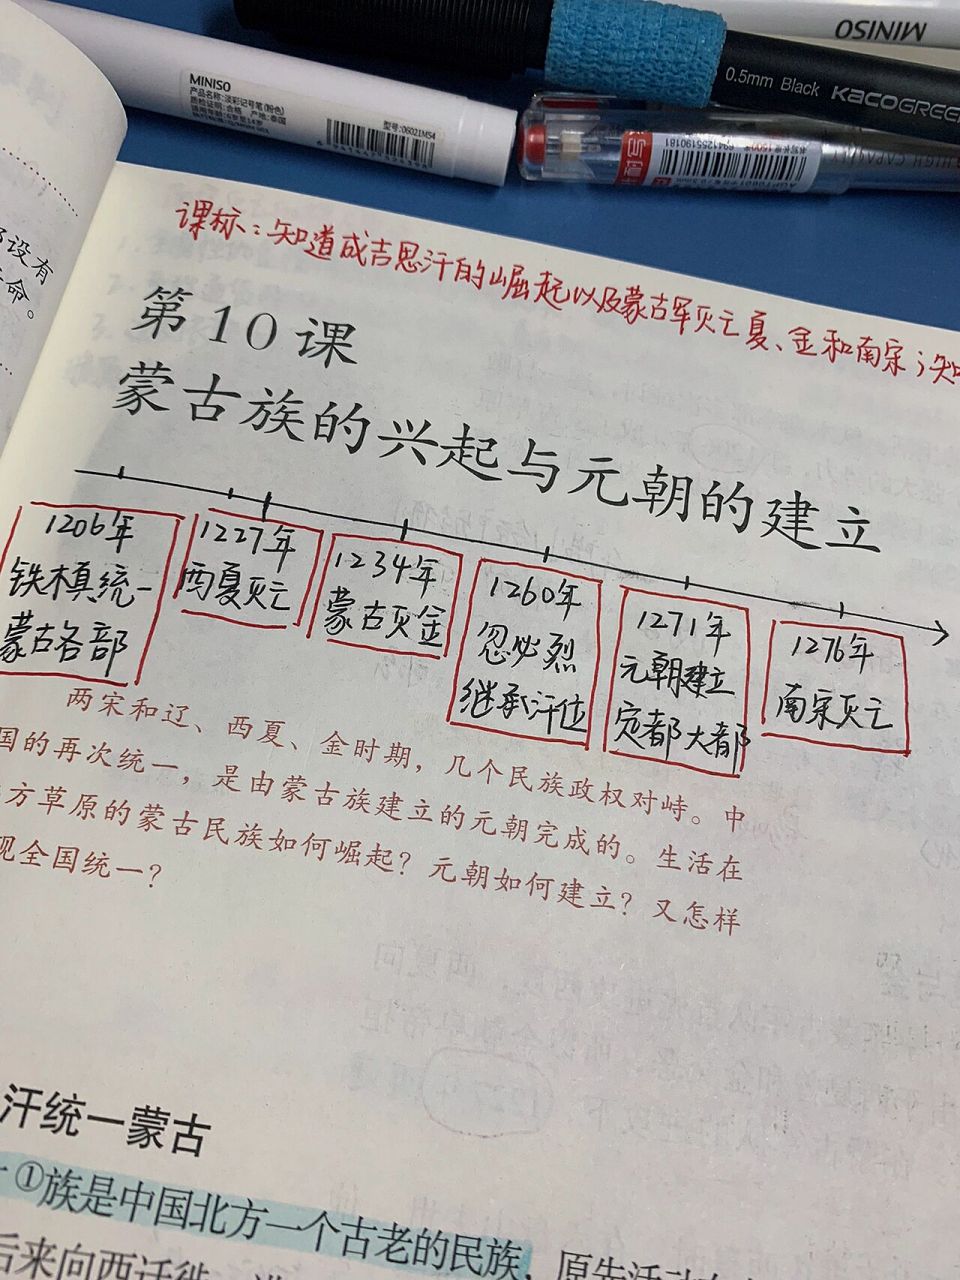 MINISO
MINISO
产品名称:淡彩记号笔(粉色)
质检证明:合格 产地:泰国
型号:06021MS4
0.5mm Black KACOGREEN
课标:知道成吉思汗的崛起以及蒙古军灭亡夏、金和南宋;知
第10课
蒙古族的兴起与元朝的建立
1206年
铁木真统一
蒙古各部
1227年
西夏灭亡
1234年
蒙古灭金
1260年
忽必烈
继承汗位
1271年
元朝建立
定都大都
1276年
南宋灭亡
两宋和辽、西夏、金时期,几个民族政权对峙。中
国的再次统一,是由蒙古族建立的元朝完成的。生活在
方草原的蒙古民族如何崛起?元朝如何建立?又怎样
现全国统一?
设有
命。
汗统一蒙古
①族是中国北方一个古老的民族,原先活动
后来向西迁徙